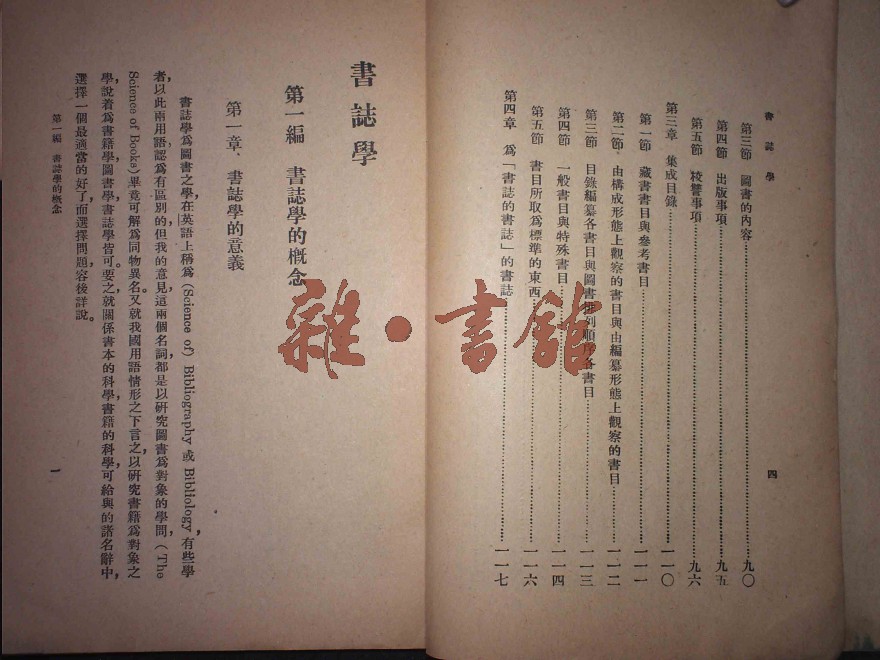 書誌學
四
第三節　圖書的內容……九〇
第四節　出版事項……九五
第五節　稜讐事項……九六
第三章　集成目錄……一一〇
第一節　藏書書目與參考書目……一一一
第二節　由構成形態上觀察的書目與由編纂形態上觀察的書目……一一二
第三節　目錄編纂各書目與圖書排列順序各書目……一一三
第四節　一般書目與特殊書目……一一四
第五節　書目所取爲標準的東西……一一六
第四章　爲「書誌的書誌」的書誌……一一七
書誌學
第一編　書誌學的概念
第一章　書誌學的意義
書誌學爲圖書之學，在英語上稱爲 (Science of) Bibliography 或 Bibliology 有些學
者，以此兩用語認爲有區別的，但我的意見，這兩個名詞都是以研究圖書爲對象的學問，(The
Science of Books) 畢竟可解爲同物異名。又就我國用語情形之下言之，以研究書籍爲對象之
學，說着爲書籍學，圖書學，書誌學皆可。要之，就關係書本的科學，書籍的科學，可給與的諸名辭中，
選擇一個最適當的好了，而選擇問題，容後詳說。
第一編　書誌學的概念
一
雜·書館